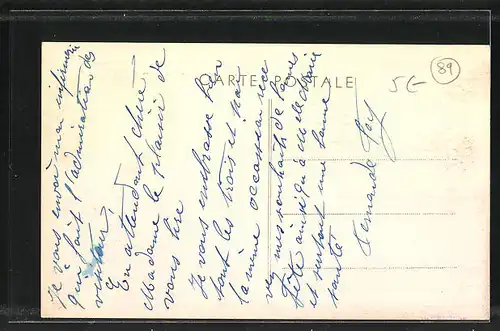 CARTE POSTALE
89
5€-
Je vous envoie mon infirmière
qui fait l'admiration des
visiteurs
En attendant chère
Madame le plaisir de
vous lire
Je vous embrasse bien
tout les trois et par
la même occassion rece
vez mes souhaits de bonnes
fête ainsi qu'à Melle
et surtout une bonne
santé
Fernande Foy